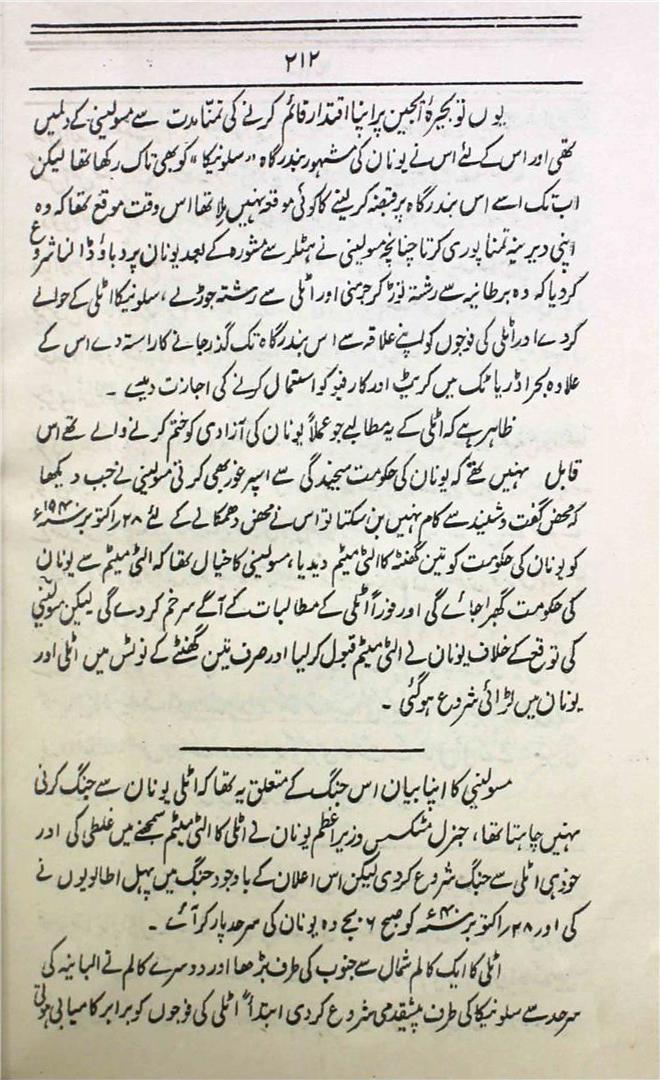 ۲۱۲
یوں تو بحیرۂ ایجین پر اپنا اقتدار قائم کرنے کی تمنا مدت سے مسولینی کے دلمیں
تھی اور اس کے لئے اس نے یونان کی مشہور بندرگاہ "سلونیکا" کو بھی تاک رکھا تھا لیکن
اب تک اسے اس بندرگاہ پر قبضہ کر لینے کا کوئی موقعہ نہیں ملا تھا اس وقت موقع تھا کہ وہ
اپنی دیرینہ تمنا پوری کرتا چنانچہ مسولینی نے ہٹلر سے مشورہ کے بعد یونان پر دباؤ ڈالنا شروع
کر دیا کہ وہ برطانیہ سے رشتہ توڑ کر جرمنی اور اٹلی سے رشتہ جوڑلے، سلونیکا اٹلی کے حوالے
کر دے اور اٹلی کی فوجوں کو اپنے علاقہ سے اس بندرگاہ تک گذر جانے کا راستہ دے اس کے
علاوہ بحر اڈریاٹک میں کریٹ اور کارفو کو استعمال کرنے کی اجازت دیدے ۔
ظاہر ہے کہ اٹلی کے یہ مطالبے جو عملاً یونان کی آزادی کو ختم کرنے والے تھے اس
قابل نہیں تھے کہ یونان کی حکومت سنجیدگی سے اسپر غور بھی کرتی مسولینی نے جب دیکھا
کہ محض گفت و شنید سے کام نہیں بن سکتا تو اس نے محض دھمکانے کے لئے ۲۸ اکتوبر ۱۹۴۰ء
کو یونان کی حکومت کو تین گھنٹہ کا الٹی میٹم دیدیا، مسولینی کا خیال تھا کہ الٹی میٹم سے یونان
کی حکومت گھبرا جائے گی اور فوراً اٹلی کے مطالبات کے آگے سر خم کر دے گی لیکن مسولینی
کی توقع کے خلاف یونان نے الٹی میٹم قبول کر لیا اور صرف تین گھنٹے کے نوٹس میں اٹلی اور
یونان میں لڑائی شروع ہو گئی ۔
مسولینی کا اپنا بیان اس جنگ کے متعلق یہ تھا کہ اٹلی یونان سے جنگ کرنی
نہیں چاہتا تھا، جنرل مٹکسس وزیر اعظم یونان نے اٹلی کا الٹی میٹم سمجھنے میں غلطی کی اور
خود ہی اٹلی سے جنگ شروع کر دی لیکن اس اعلان کے باوجود جنگ میں پہل اطالویوں نے
کی اور ۲۸ اکتوبر ۴۰ء کو صبح ۶ بجے وہ یونان کی سرحد پار کر آئے ۔
اٹلی کا ایک کالم شمال سے جنوب کی طرف بڑھا اور دوسرے کالم نے البانیہ کی
سرحد سے سلونیکا کی طرف پیشقدمی شروع کر دی ابتداً اٹلی کی فوجوں کو برابر کامیابی ہوئی